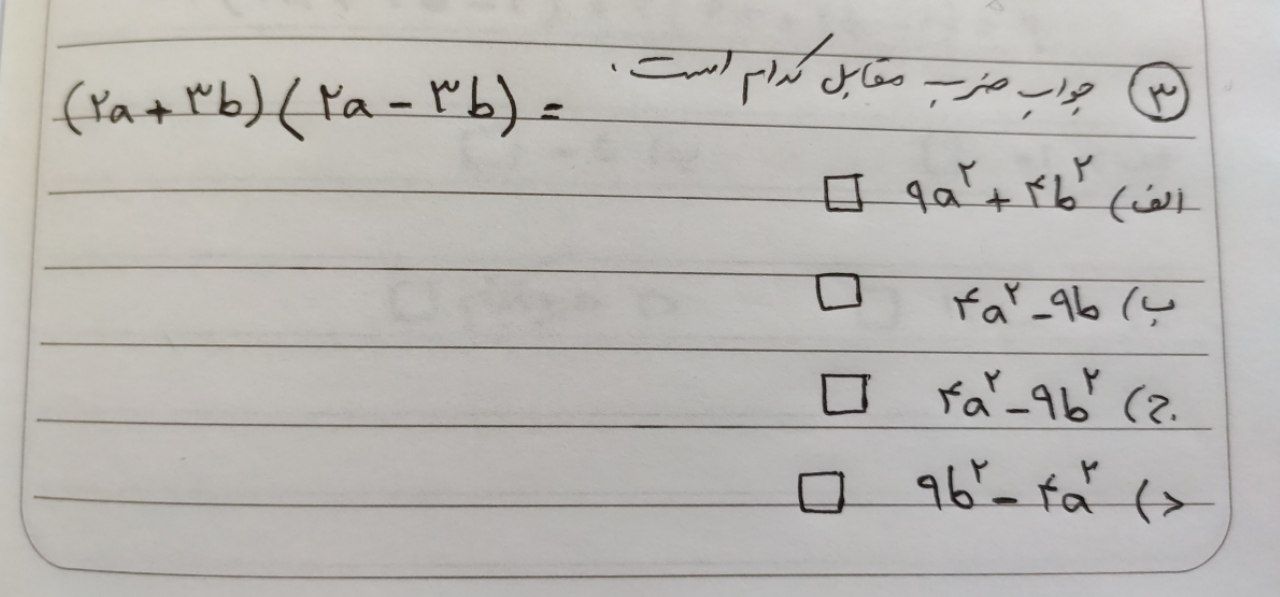 ۳ جواب ضرب مقابل کدام است. (۲a + ۳b) (۲a - ۳b) =
الف) ۹a² + ۴b² □
ب) ۴a² - ۹b □
ج) ۴a² - ۹b² □
د) ۹b² - ۴a² □